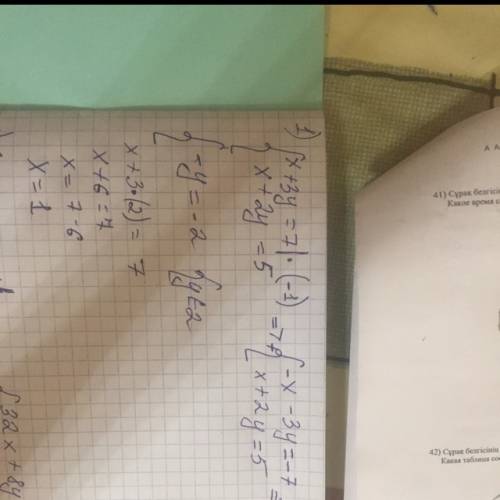 1) { x + 3y = 7 | · (-1) => { -x - 3y = -7 =
x + 2y = 5 { x + 2y = 5
{ -y = -2 { y = 2
x + 3 · (2) = 7
x + 6 = 7
x = 7 - 6
x = 1
{ 32x + 8y
А А
41) Сұрақ белгісін
Какое время
42) Сұрақ белгісінің
Какая таблица